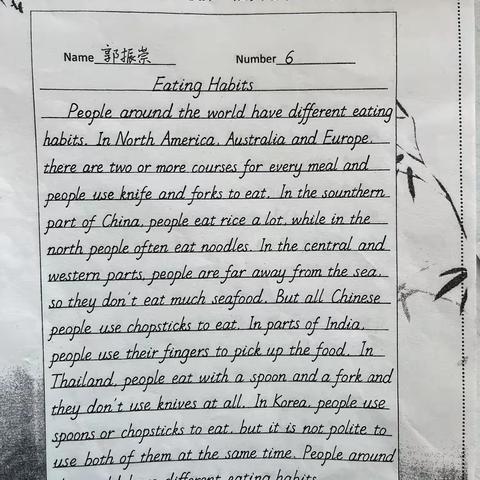 Name 郭振崇 Number 6
Eating Habits
People around the world have different eating
habits. In North America, Australia and Europe,
there are two or more courses for every meal and
people use knife and forks to eat. In the sounthern
part of China, people eat rice a lot, while in the
north people often eat noodles. In the central and
western parts, people are far away from the sea,
so they don't eat much seafood. But all Chinese
people use chopsticks to eat. In parts of India,
people use their fingers to pick up the food. In
Thailand, people eat with a spoon and a fork and
they don't use knives at all. In Korea, people use
spoons or chopsticks to eat, but it is not polite to
use both of them at the same time. People around
different eating habits